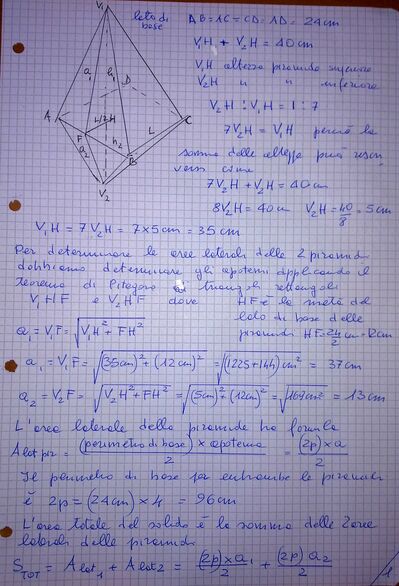 V₁
lato di
base
AB = AC = CD = AD = 24 cm
V₁H + V₂H = 40 cm
V₁H altezza piramide superiore
V₂H " " inferiore
V₂H : V₁H = 1 : 7
7V₂H = V₁H perciò la
somma delle altezze può
versi come
7V₂H + V₂H = 40 cm
8V₂H = 40 cm V₂H = 40/8 = 5 cm
a h₁ D
A L/2 H L C
F h₂ B
a₂
V₂
V₁H = 7V₂H = 7×5 cm = 35 cm
Per determinare le aree laterali delle 2 piramidi
dobbiamo determinare gli apotemi applicando il
teorema di Pitagora ai triangoli rettangoli
V₁HF e V₂HF dove HF è la metà del
lato di base delle
piramidi HF = 24/2 cm = 12 cm
a₁ = V₁F = √(V₁H² + FH²)
a₁ = V₁F = √((35cm)² + (12cm)²) = √((1225+144) cm²) = 37 cm
a₂ = V₂F = √(V₂H² + FH²) = √((5cm)² + (12cm)²) = √(169cm²) = 13 cm
L'area laterale della piramide ha formula
A lat pir = (perimetro di base) × apotema / 2 = (2p) × a / 2
Il perimetro di base per entrambe le piramidi
è 2p = (24cm) × 4 = 96 cm
L'area totale del solido è la somma delle 2 aree
laterali delle piramidi
S TOT = A lat₁ + A lat 2 = (2p) × a₁ / 2 + (2p) a₂ / 2
1